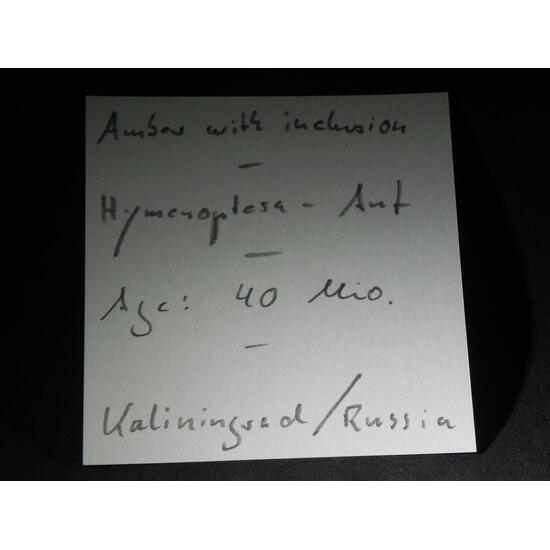 Amber with inclusion
—
Hymenoptera - Ant
—
Age: 40 Mio.
—
Kaliningrad/Russia